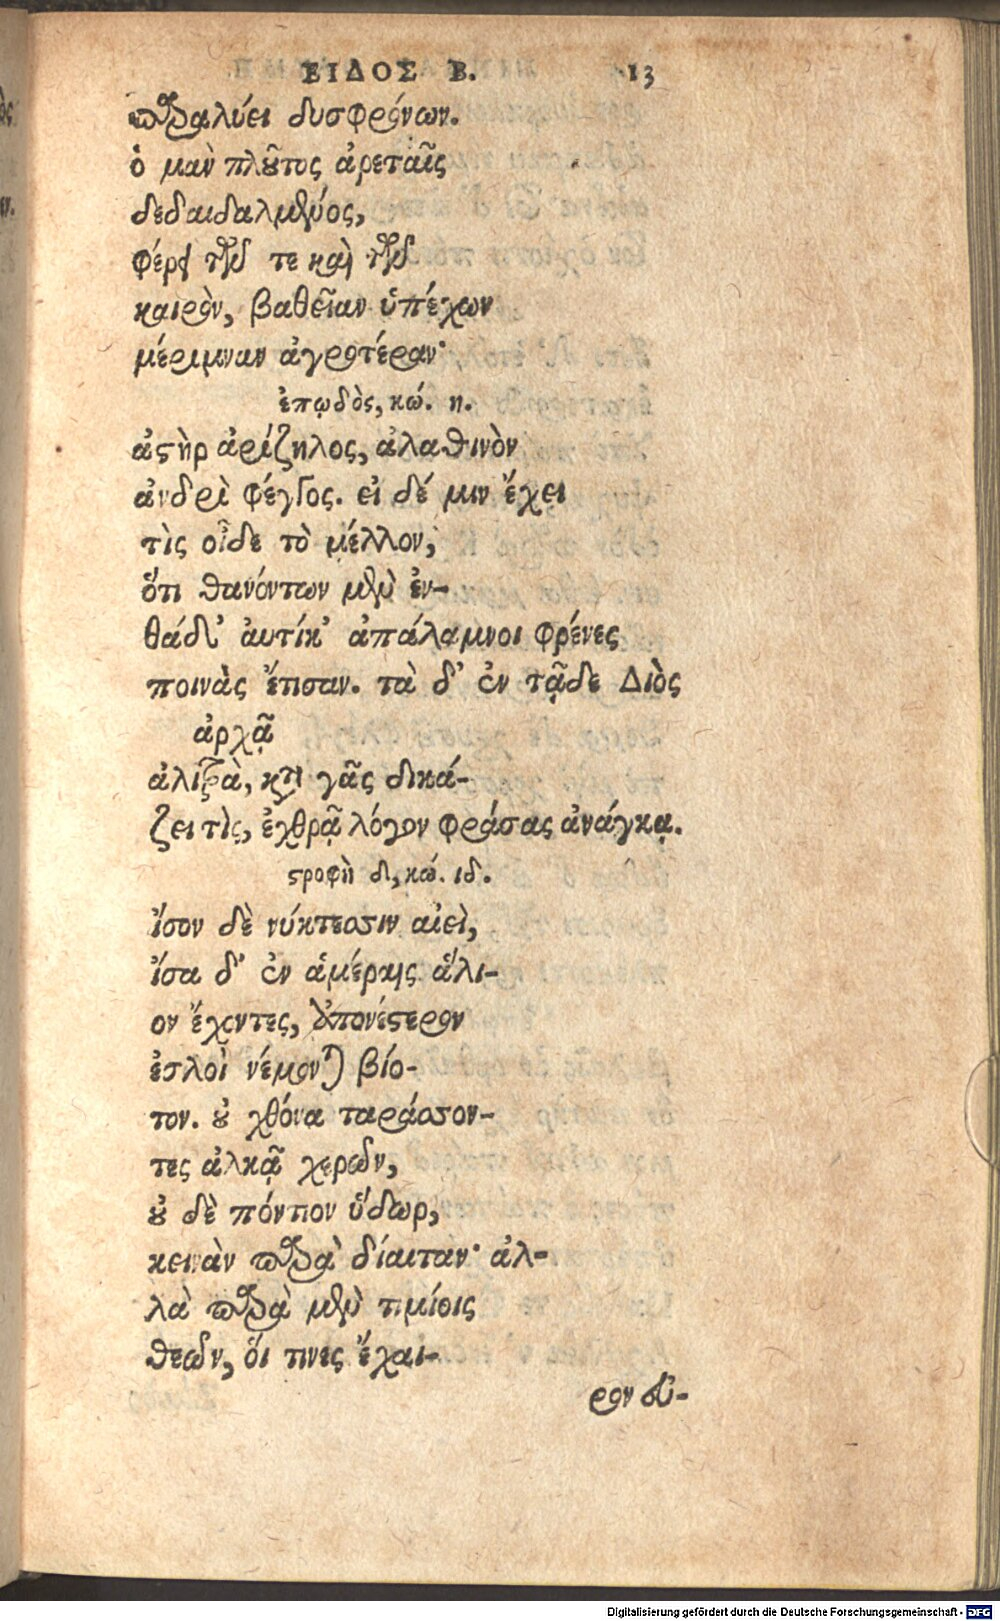 ΕΙΔΟΣ Β. 13
παραλύει δυσφρόνων.
ὁ μαὺ πλοῦτος ἀρεταῖς
δεδαιδαλμένος,
φέρει τῶν τε καὶ τῶν
καιρὸν, βαθεῖαν ὑπέχων
μέριμναν ἀγροτέραν·
ἐπῳδὸς, κώ. η.
ἀστὴρ ἀρίζηλος, ἀλαθινὸν
ἀνδρὶ φέγγος. εἰ δέ μιν ἔχει
τὶς οἶδε τὸ μέλλον,
ὅτι θανόντων μὲν ἐν-
θάδ' ἀυτίκ' ἀπάλαμνοι φρένες
ποινὰς ἔτισαν. τὰ δ' ἐν τᾷδε Διὸς
ἀρχᾷ
ἀλιτρὰ, κατὰ γᾶς δικά-
ζει τὶς, ἐχθρᾷ λόγον φράσας ἀνάγκᾳ.
στροφὴ δ, κώ. ιδ.
ἴσον δὲ νύκτεσσιν αἰεὶ,
ἴσα δ' ἐν ἁμέραις ἅλι-
ον ἔχοντες, ἀπονέστερον
ἐσλοὶ νέμονται βίο-
τον. οὐ χθόνα ταράσσον-
τες ἀλκᾷ χερῶν,
οὐ δὲ πόντιον ὕδωρ,
κεινὰν παρὰ δίαιταν· ἀλ-
λὰ παρὰ μὲν τιμίοις
θεῶν, ὅι τινες ἔχαι-
ρον εὐ-
Digitalisierung gefördert durch die Deutsche Forschungsgemeinschaft - DFG